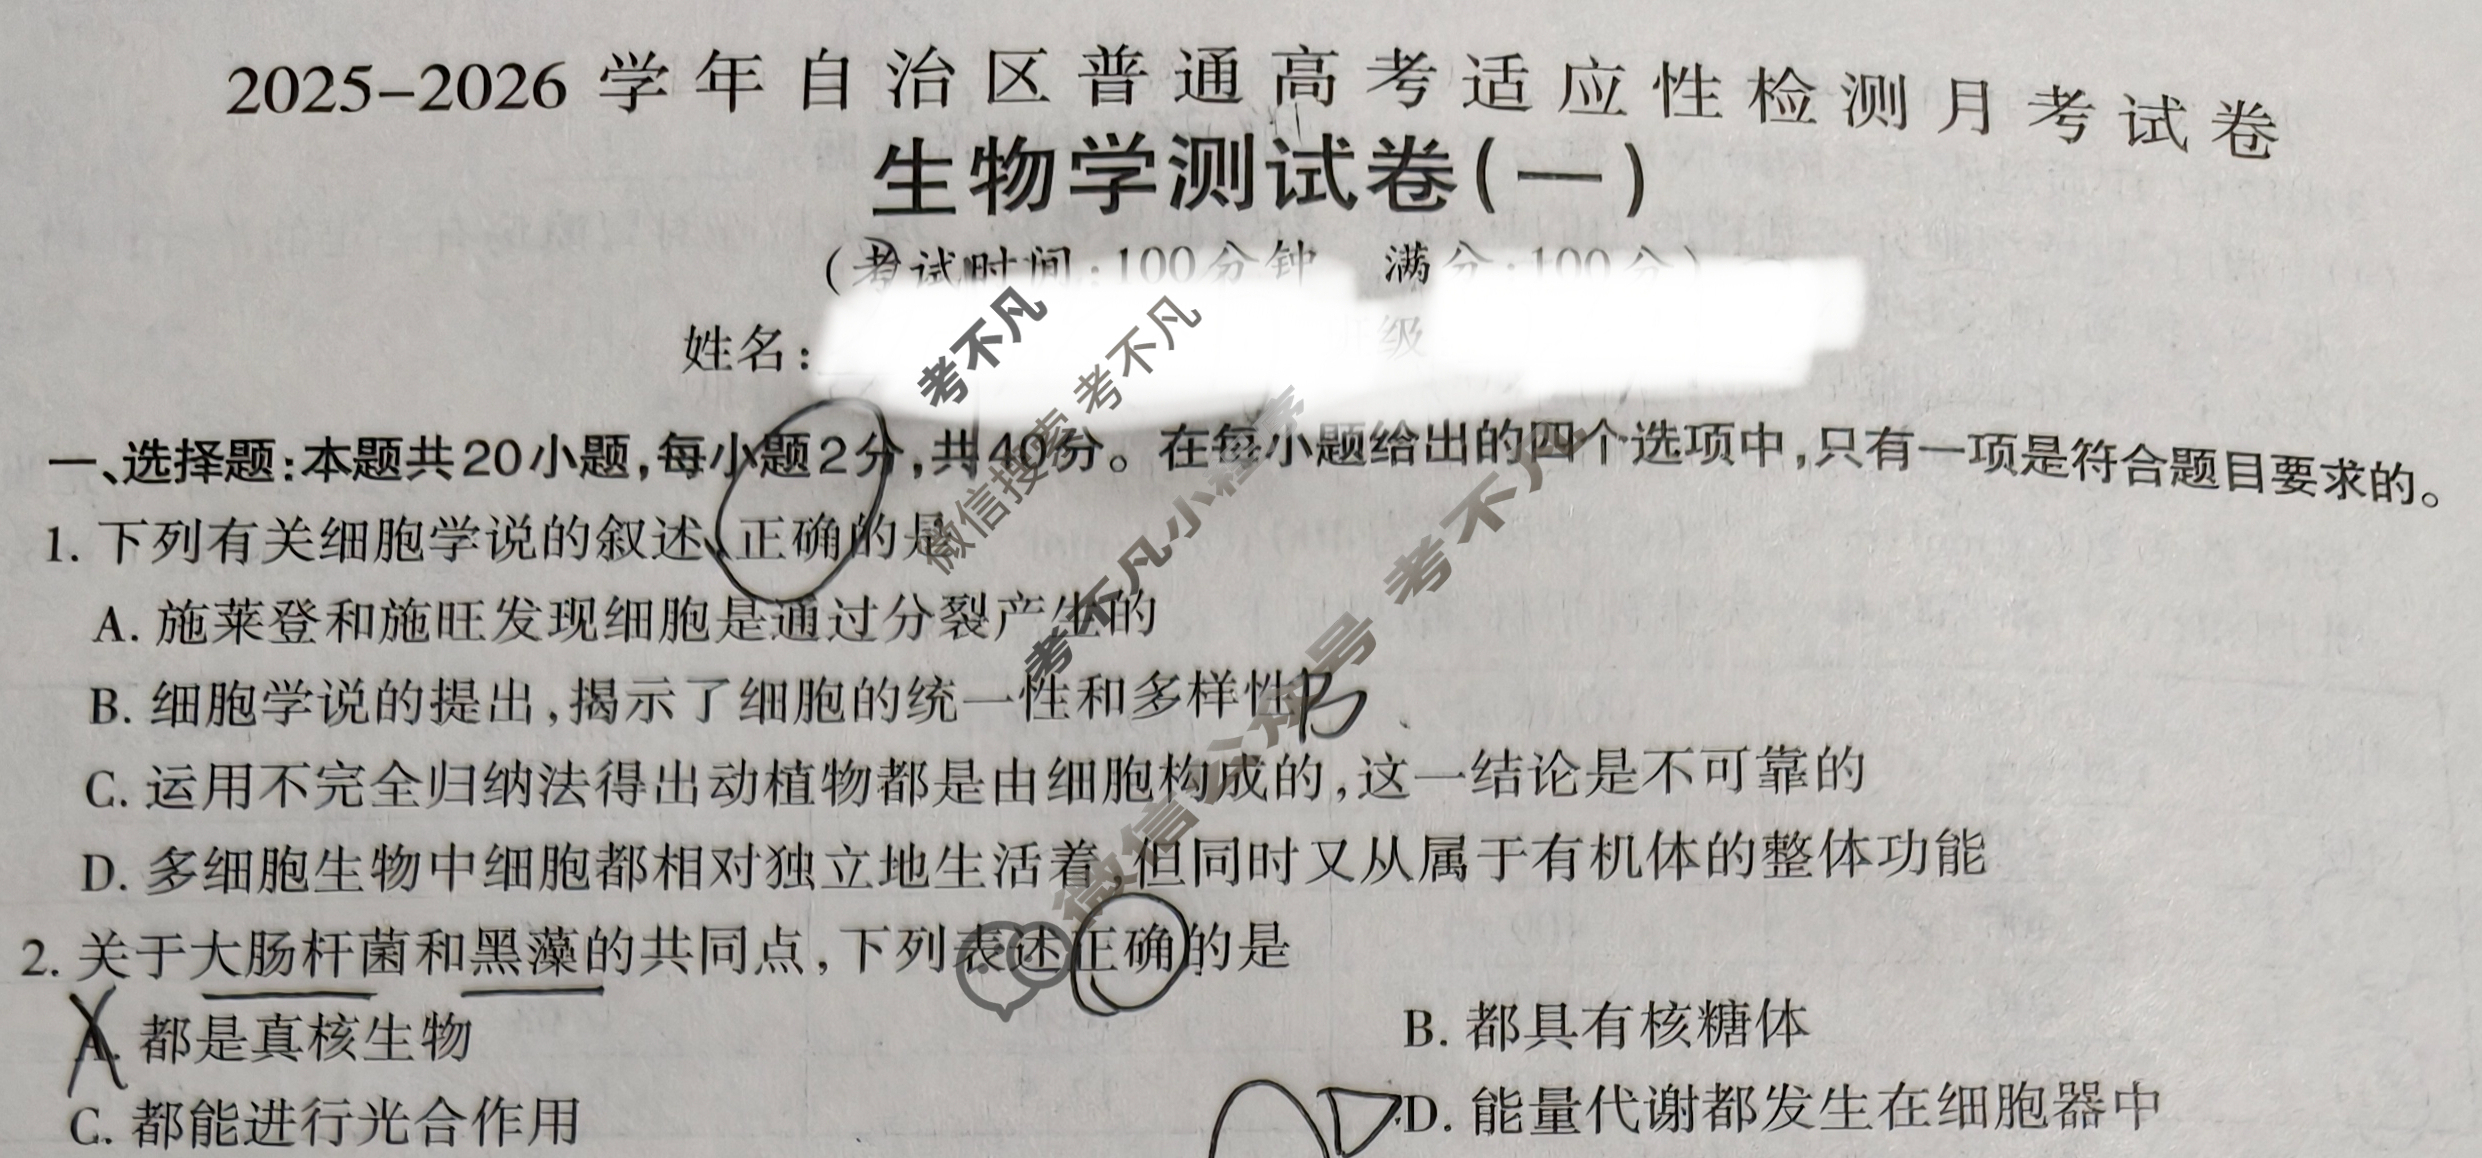 2025-2026 学年自治区普通高考适应性检测月考试卷
生物学测试卷(一)
(考试时间:100分钟 满分:100分)
姓名: 级
一、选择题:本题共20小题,每小题2分,共40分。在每小题给出的四个选项中,只有一项是符合题目要求的。
1. 下列有关细胞学说的叙述,正确的是
A. 施莱登和施旺发现细胞是通过分裂产生的
B. 细胞学说的提出,揭示了细胞的统一性和多样性 B
C. 运用不完全归纳法得出动植物都是由细胞构成的,这一结论是不可靠的
D. 多细胞生物中细胞都相对独立地生活着,但同时又从属于有机体的整体功能
2. 关于大肠杆菌和黑藻的共同点,下列表述正确的是
A. 都是真核生物
B. 都具有核糖体
C. 都能进行光合作用
D. 能量代谢都发生在细胞器中
考不凡
微信搜索 考不凡
考不凡小程序
微信公众号 考不凡